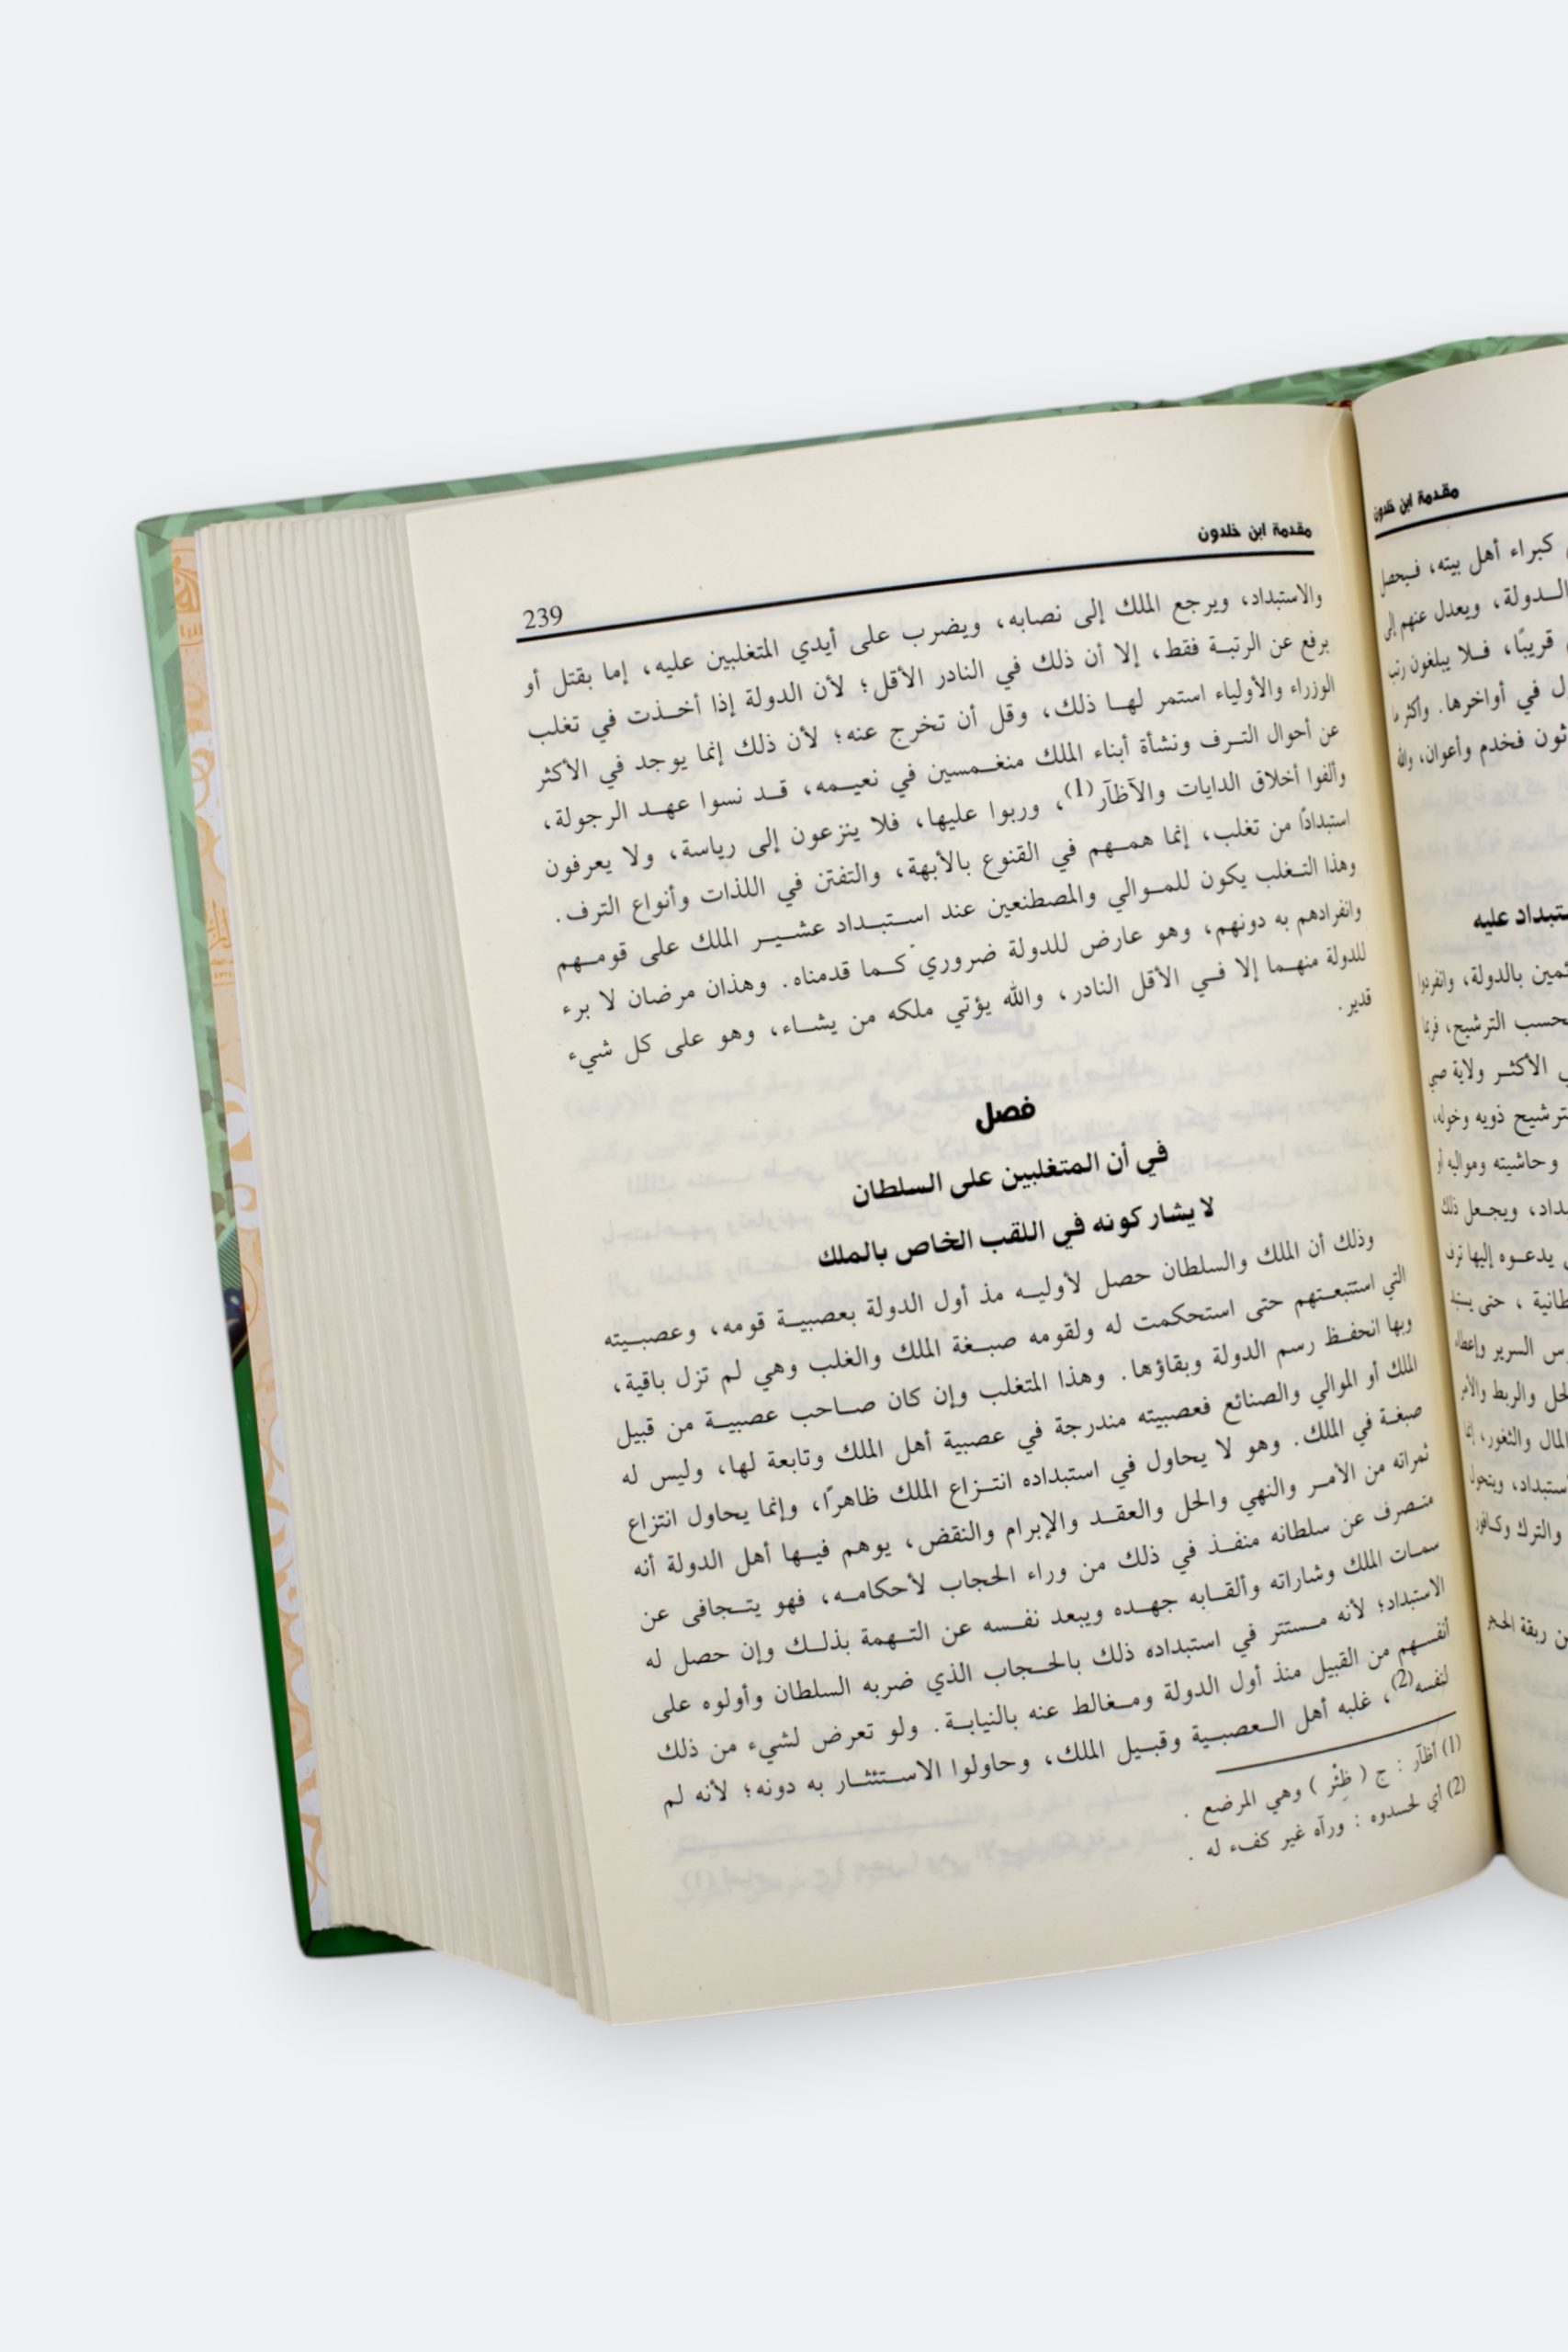 مقدمة ابن خلدون
كبراء أهل بيته، فيحصل
الـدولة، ويعدل عنهم إلى
قريبًا، فـلا يبلغون رتب
في أواخرها. وأكثر ما
فخدم وأعوان، والله
عليه
بالدولة، وانفردوا
الترشيح، فربما
الأكثـر ولاية صبي
ذويه وخوله،
وحاشيته ومواليه أو
ويجـعل ذلك
يدعـوه إليها ترف
، حتى يستبد
السرير وإعطاء
والربط والأمر
المال والثغور، إنما
ويتحول
والترك وكافور
ربقة الحجر
مقدمة ابن خلدون
239
والاستبداد، ويرجع الملك إلى نصابه، ويضرب على أيدي المتغلبين عليه، إما بقتل أو
برفع عن الرتبـة فقط، إلا أن ذلك في النادر الأقل؛ لأن الدولة إذا أخـذت في تغلب
الوزراء والأولياء استمر لهـا ذلك، وقل أن تخرج عنه؛ لأن ذلك إنما يوجد في الأكثر
عن أحوال التـرف ونشأة أبناء الملك منغـمسين في نعيـمه، قـد نسوا عهـد الرجولة،
وألفوا أخلاق الدايات والآظآر(1)، وربوا عليها، فلا ينزعون إلى رياسة، ولا يعرفون
استبدادًا من تغلب، إنما همـهم في القنوع بالأبهة، والتفتن في اللذات وأنواع الترف.
وهذا التـغلب يكون للمـوالي والمصطنعين عند استـبـداد عشـيـر الملك على قومـهم
وانفرادهم به دونهم، وهو عارض للدولة ضروري كـما قدمناه. وهذان مرضان لا برء
للدولة منهـما إلا فـي الأقل النادر، والله يؤتي ملكه من يشـاء، وهو على كل شيء
قدير.
فصل
في أن المتغلبين على السلطان
لا يشاركونه في اللقب الخاص بالملك
وذلك أن الملك والسلطان حصل لأوليـه مذ أول الدولة بعصبيـة قومه، وعصبـيته
التي استتبعـتهم حتى استحكمت له ولقومه صبـغة الملك والغلب وهي لم تزل باقية،
وبها انحفـظ رسم الدولة وبقاؤها. وهذا المتغلب وإن كان صـاحب عصبيـة من قبيل
الملك أو الموالي والصنائع فعصبيته مندرجة في عصبية أهل الملك وتابعة لها، وليس له
صبغـة في الملك. وهو لا يحاول في استبداده انتـزاع الملك ظاهرًا، وإنما يحاول انتزاع
ثمراته من الأمـر والنهي والحل والعقـد والإبرام والنقض، يوهم فيـها أهل الدولة أنه
متـصرف عن سلطانه منفـذ في ذلك من وراء الحجاب لأحكامـه، فهو يتـجافى عن
سمـات الملك وشاراته وألقـابه جهـده ويبعد نفـسه عن التـهمة بذلـك وإن حصل له
الاستبداد؛ لأنه مـستتر في استبداده ذلك بالحـجاب الذي ضربه السلطان وأولوه على
أنفسـهم من القبيل منذ أول الدولة ومـغالط عنه بالنيابـة. ولو تعرض لشيء من ذلك
لنفسه(2)، غلبه أهل الـعصبـية وقبـيل الملك، وحاولوا الاسـتئثـار به دونه؛ لأنه لم
(1) أظآر : ج ( ظِئْر ) وهي المرضع .
(2) أي لحسدوه : ورآه غير كفء له .